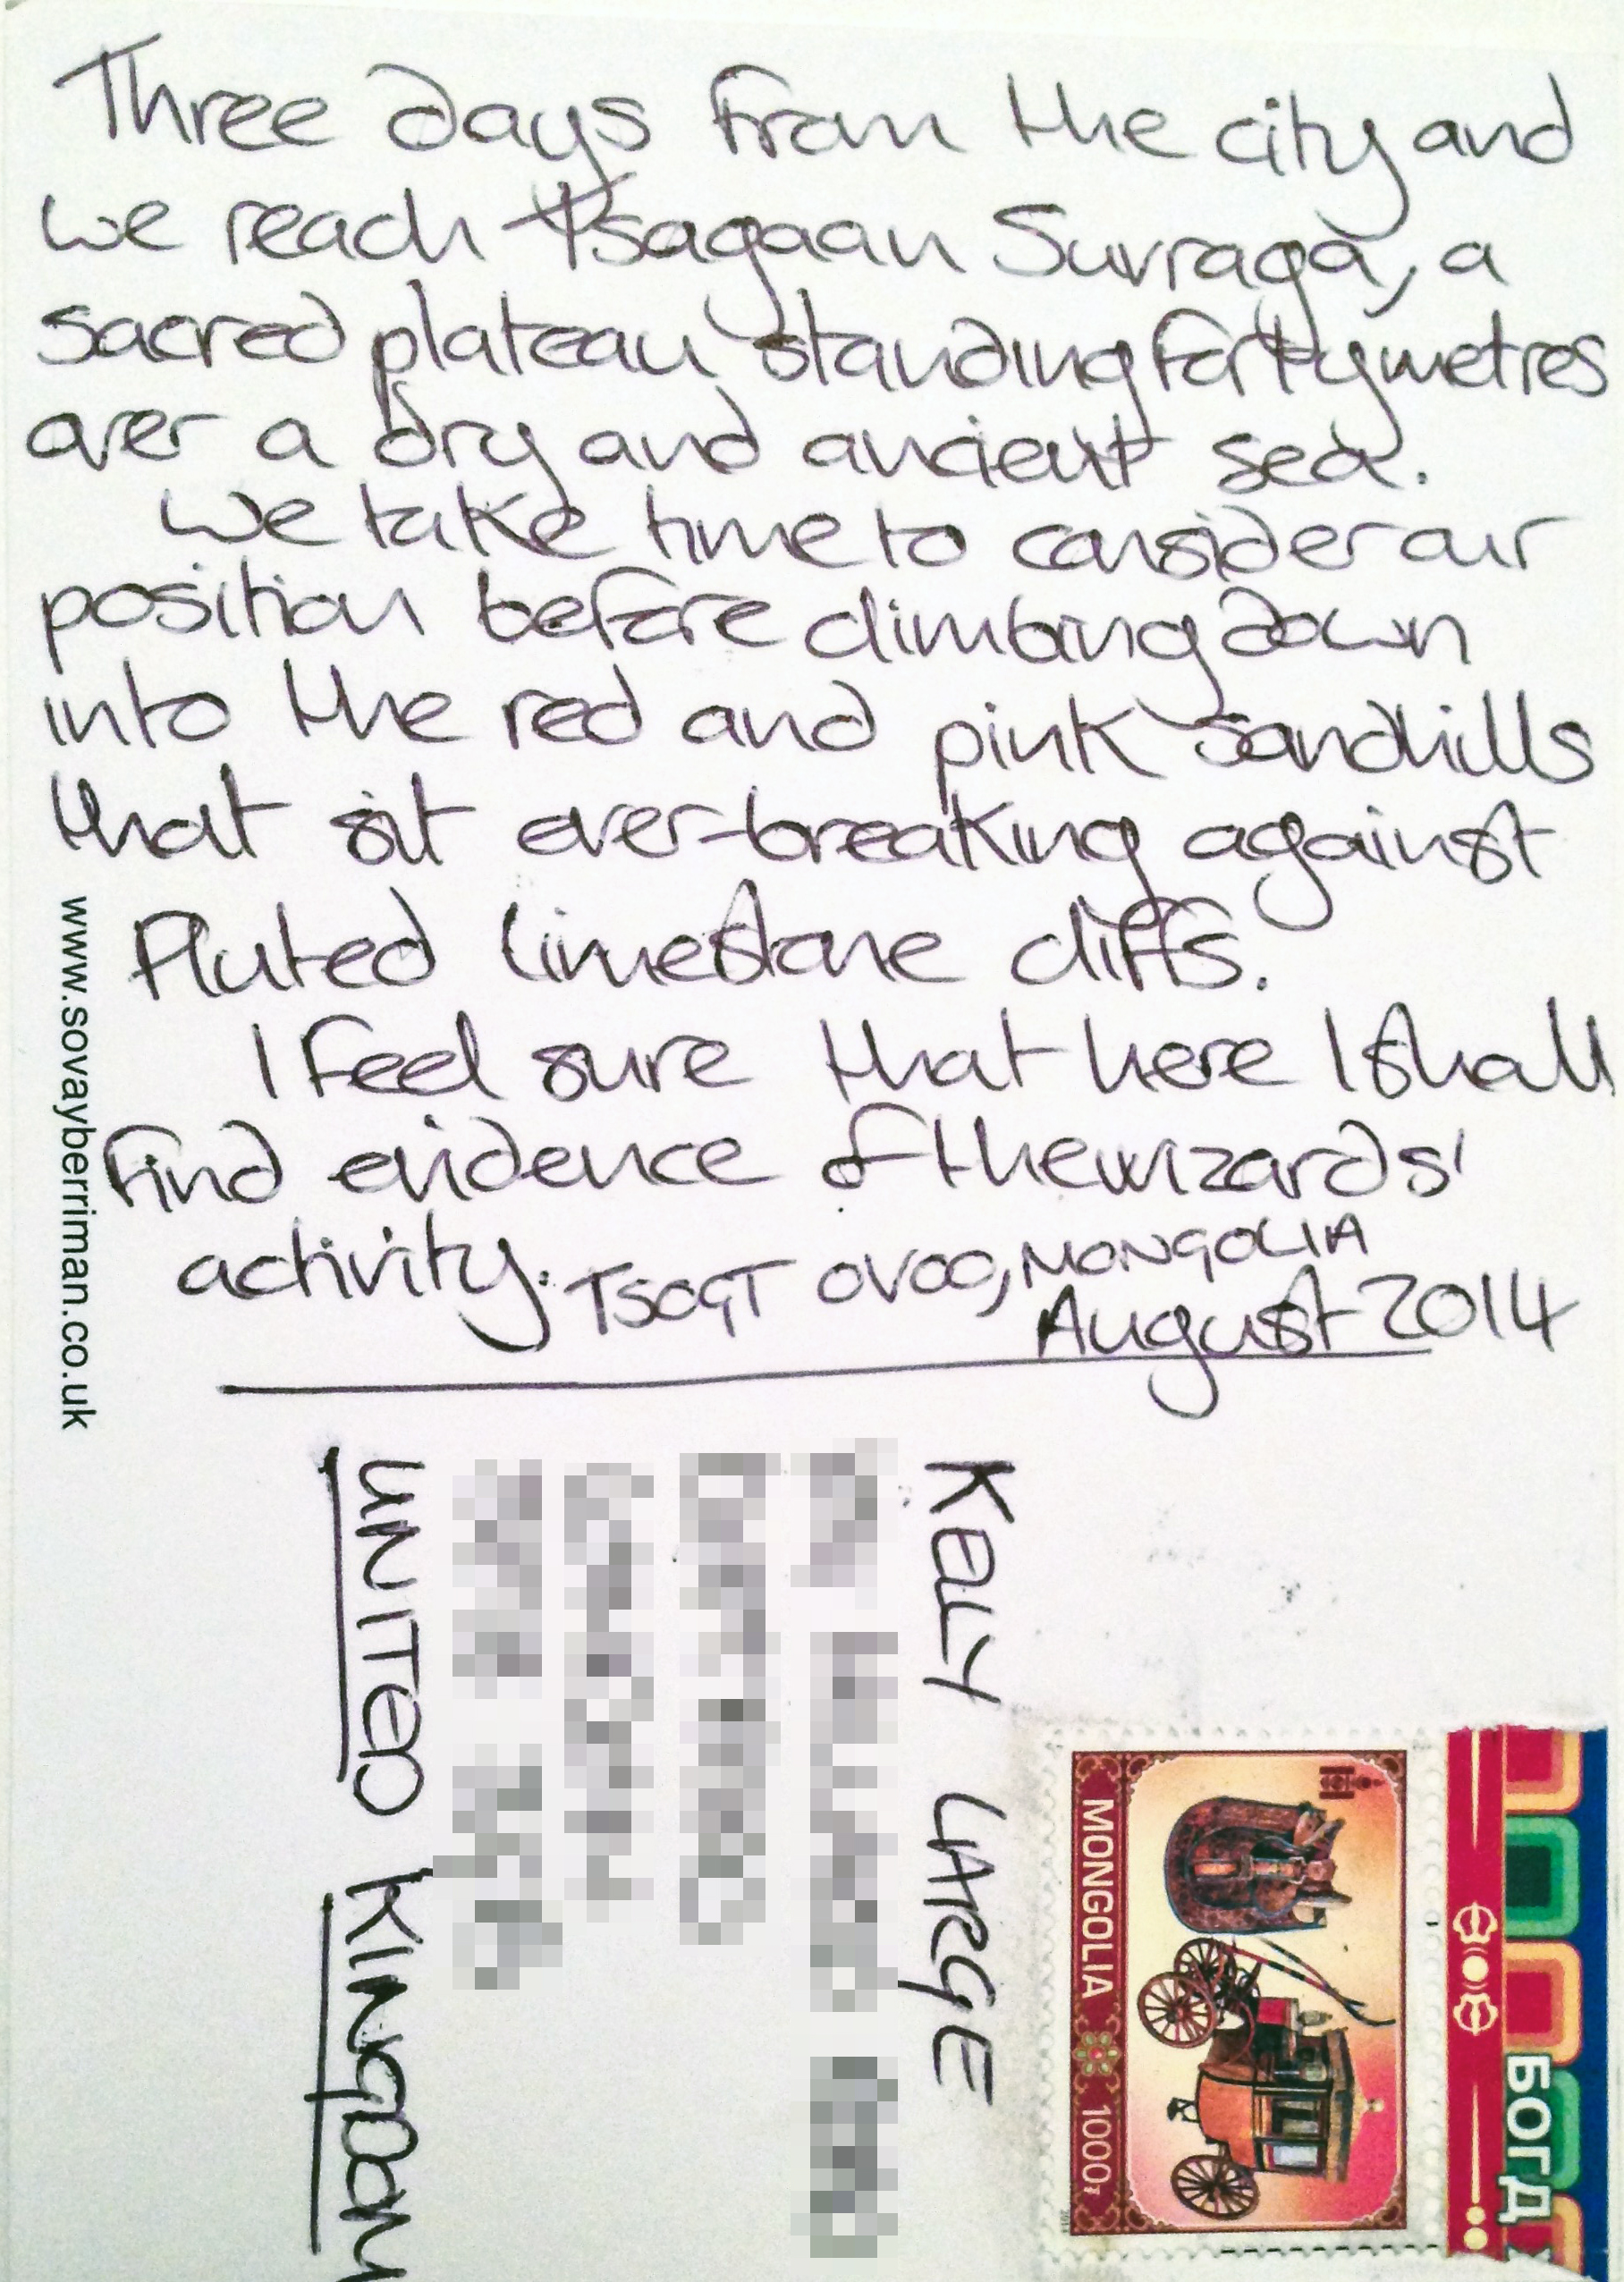 Three days from the city and
we reach Tsagaan Suvraga, a
sacred plateau standing forty metres
over a dry and ancient sea.
We take time to consider our
position before climbing down
into the red and pink sandhills
that sit ever-breaking against
fluted limestone cliffs.
I feel sure that here I shall
find evidence of the wizards'
activity.
TSOGT OVOO, MONGOLIA
August 2014
www.sovayberriman.co.uk
KELLY LARGE
UNITED KINGDOM
MONGOLIA 1000₮
2014
БОГД